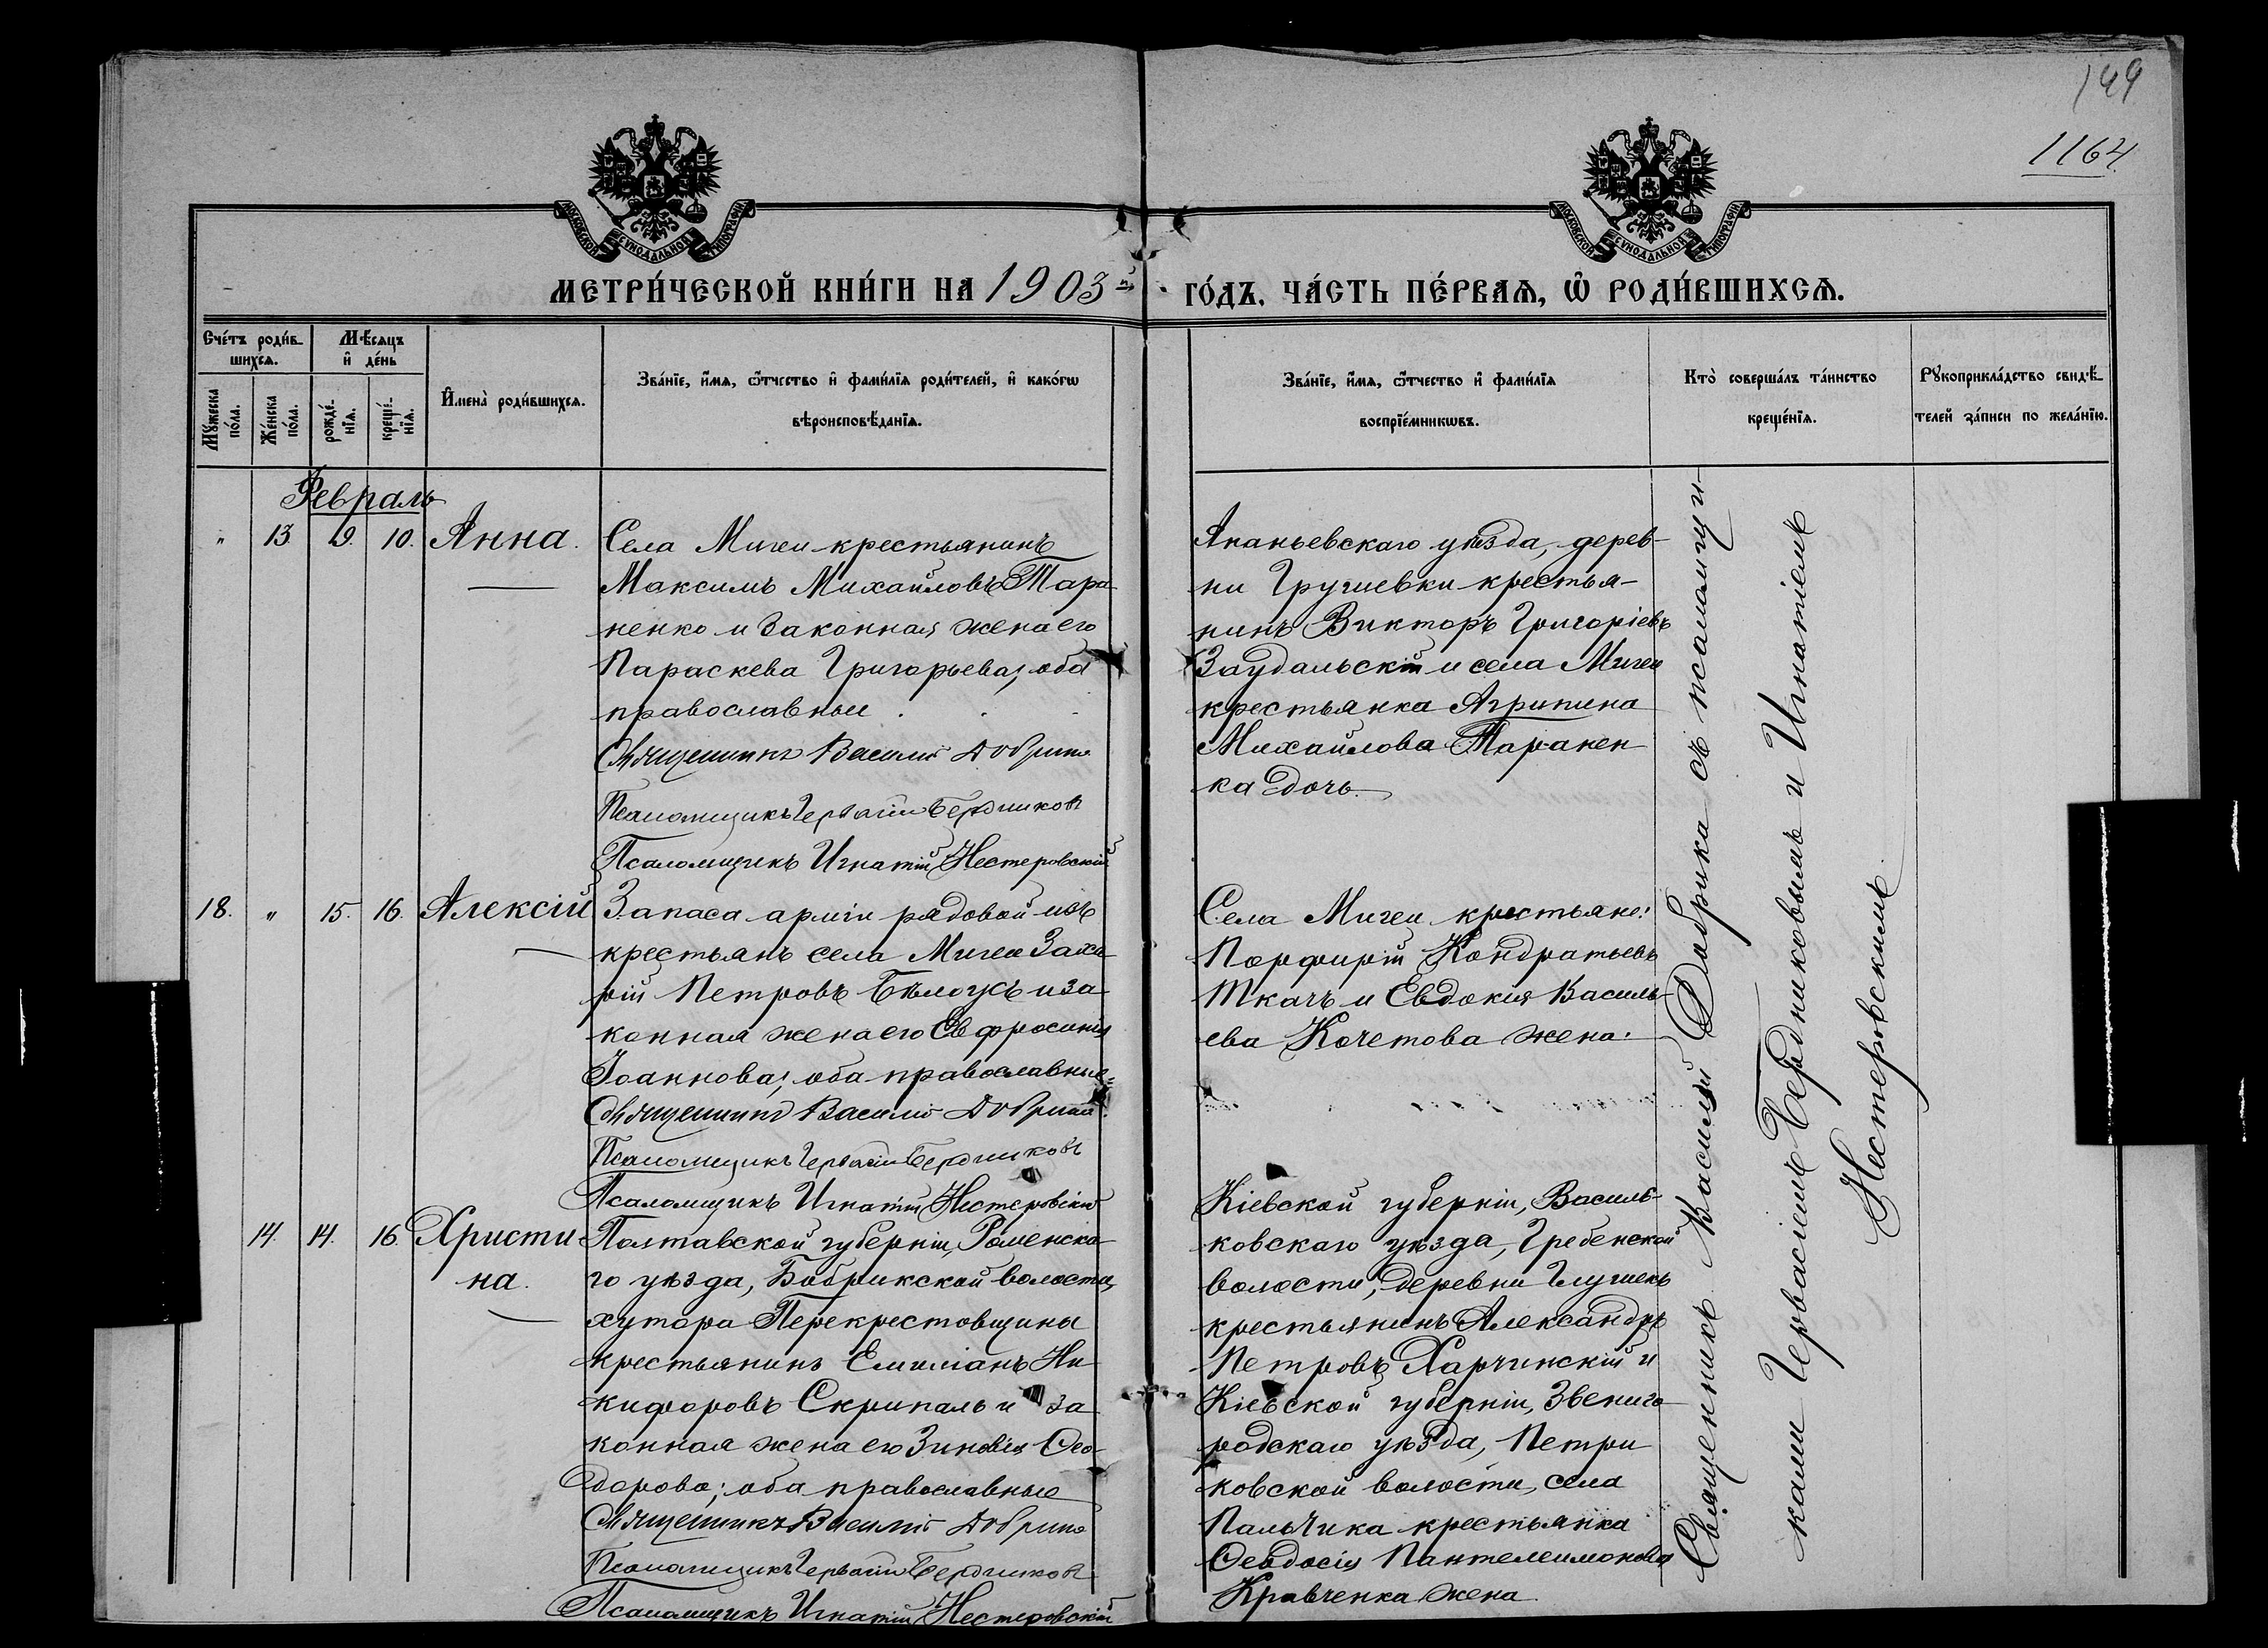 149
1164.
МОСКОВСКОЙ СѴНОДАЛЬНОЙ ТИПОГРАФІИ
МОСКОВСКОЙ СѴНОДАЛЬНОЙ ТИПОГРАФІИ
МЕТРИ́ЧЕСКОЙ КНИ́ГИ НА 1903й ГО́ДЪ, ЧА́СТЬ ПЕ́РВАѦ, Ѡ҆ РОДИ́ВШИХСѦ.
Сче́тъ роди́в-
шихсѧ.
Мѣ́сѧцъ
и҆ де́нь
Мꙋ́жеска по́ла.
Же́нска по́ла.
рожде́-
нїѧ.
креще́-
нїѧ.
И҆мена̀ роди́вшихсѧ.
Зва́нїе, и҆́мѧ, ѻ҆́тчество и҆ фами́лїѧ роди́телей, и҆ како́гѡ
вѣроисповѣ́данїѧ.
Зва́нїе, и҆́мѧ, ѻ҆́тчество и҆ фами́лїѧ
воспрїе́мникѡвъ.
Кто̀ соверша́лъ та́инство
креще́нїѧ.
Рꙋкоприкла́дство свидѣ́-
телей за́писи по жела́нїю.
Февраль
" 13. 9. 10. Анна.
Села Мигеи крестьянинъ
Максимъ Михайловъ Тара-
ненко и законная жена его
Параскева Григорьева; оба
православные.
Священникъ Василій Добрика
Псаломщикъ Гервасій Бердниковъ
Псаломщикъ Игнатій Нестеровскій
Ананьевскаго уѣзда, дерев-
ни Грушевки крестья-
нинъ Викторъ Григоріевъ
Заудальскій и села Мигеи
крестьянка Агрипина
Михайлова Таранен-
ка дочь.
18. " 15. 16. Алексій
Запаса арміи рядовой изъ
крестьянъ села Мигеи Заха-
рій Петровъ Бѣлоусъ и за-
конная жена его Евфросинія
Іоаннова; оба православные
Священникъ Василій Добрика
Псаломщикъ Гервасій Бердниковъ
Псаломщикъ Игнатій Нестеровскій
Села Мигеи крестьяне:
Порфирій Кондратьевъ
Ткачъ и Евдокия Василь-
ева Кочетова жена.
14. 14. 16 Христи-
на.
Полтавской губерніи, Роменска-
го уѣзда, Бобрикской волости,
хутора Перекрестовщины
крестьянинъ Емиліанъ Ни-
кифоровъ Скрипаль и за-
конная жена его Зиновія Ѳео-
дорова; оба православные
Священникъ Василій Добрика
Псаломщикъ Гервасій Бердниковъ
Псаломщикъ Игнатій Нестеровскій
Кіевской губерніи, Василь-
ковскаго уѣзда, Гребенской
волости, деревни Глушекъ
крестьянинъ Александръ
Петровъ Харчинскій и
Кіевской губерніи, Звениго-
родскаго уѣзда, Петри-
ковской волости, села
Пальчика крестьянка
Ѳеодосія Пантелеимонова
Кравченка жена
Священникъ Василій Добрика съ псаломщи-
ками Гервасіемъ Бердниковымъ и Игнатіемъ
Нестеровскимъ.